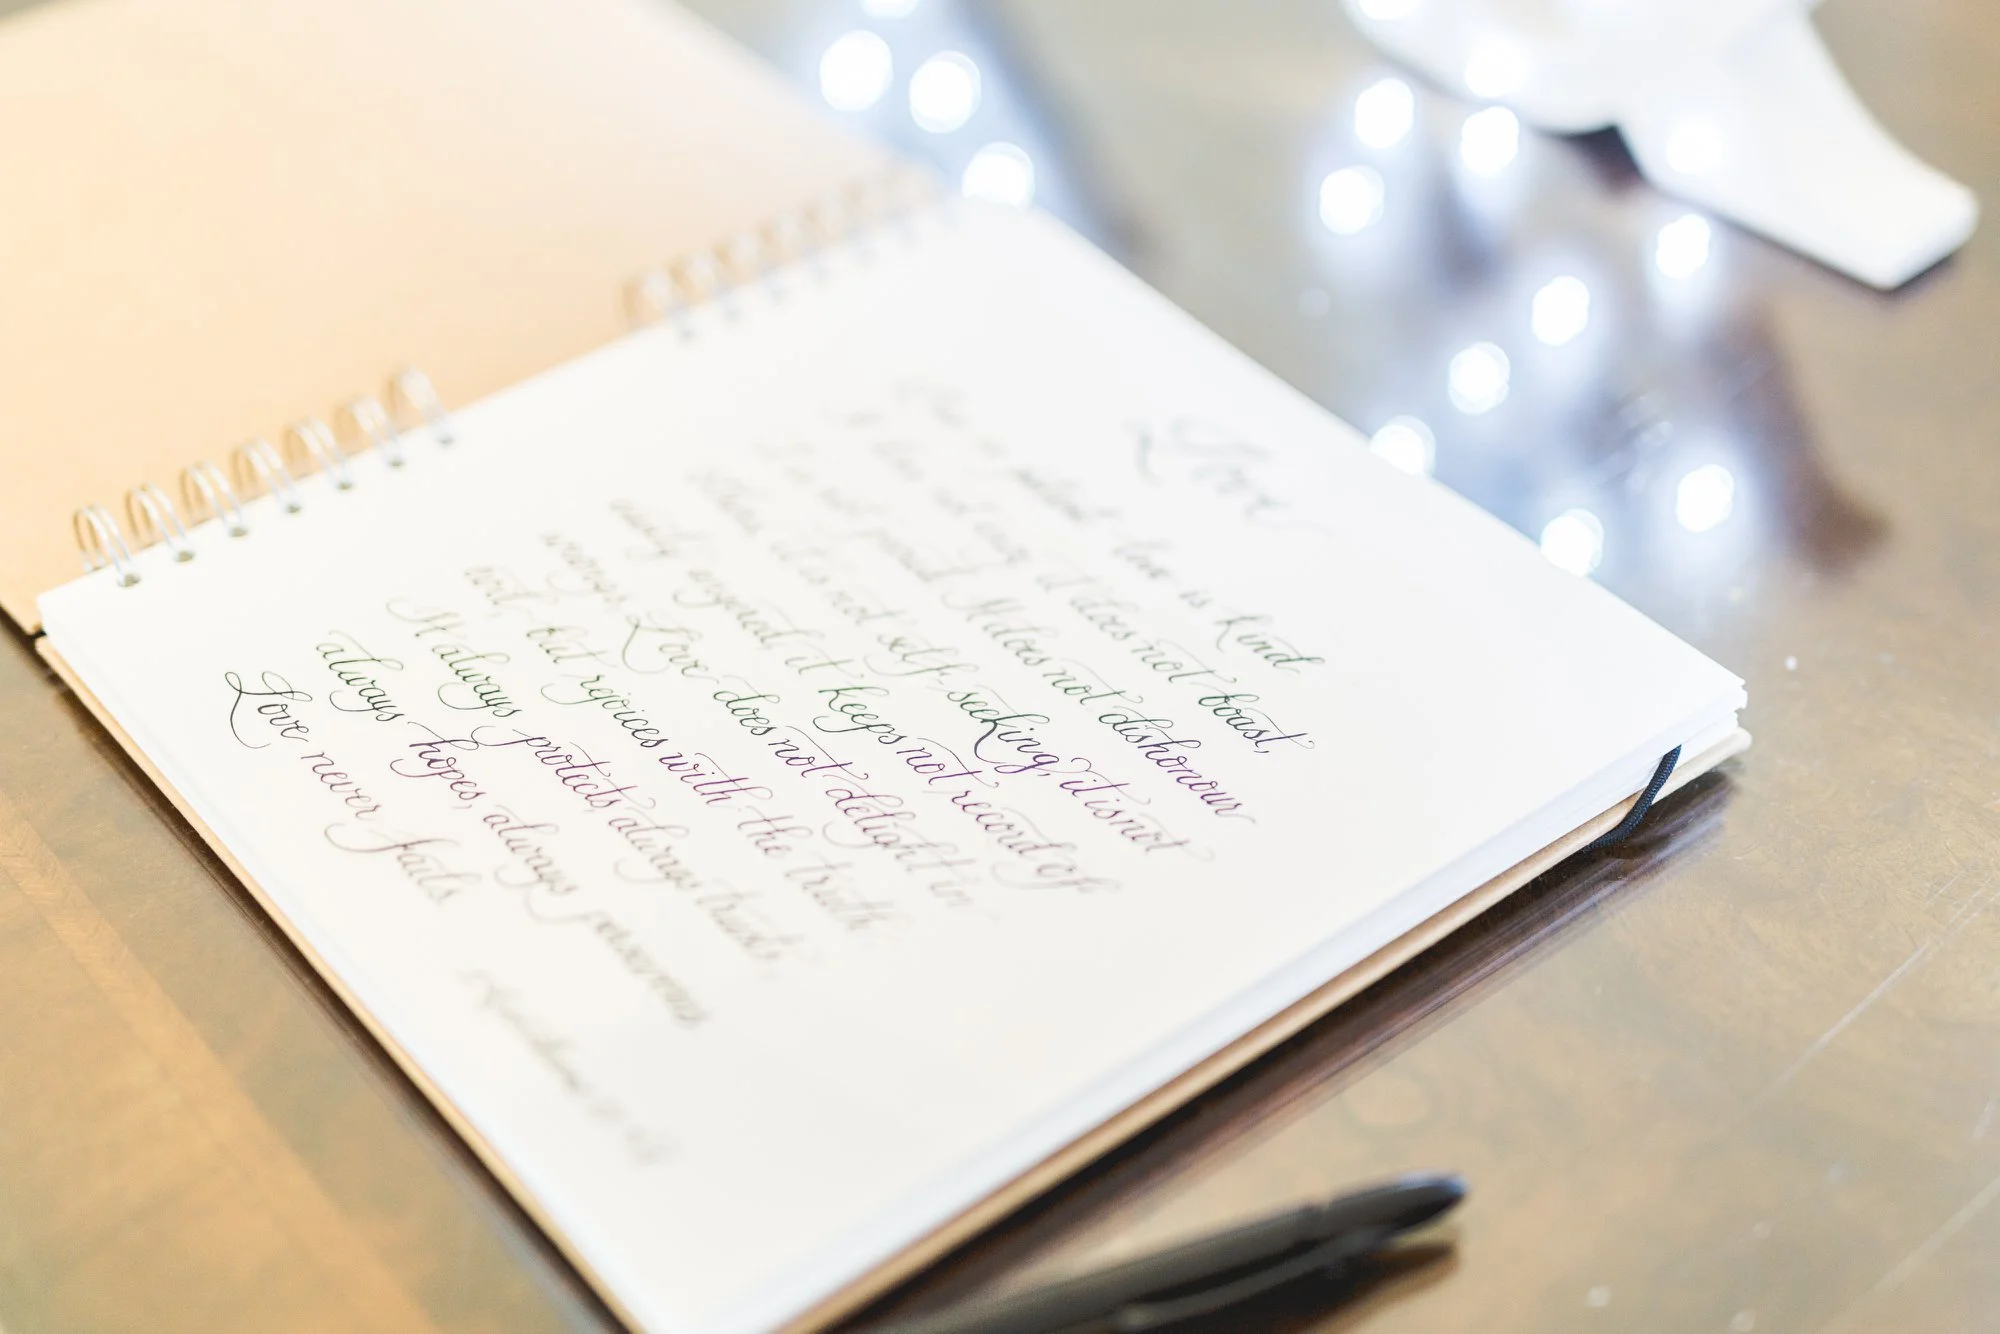 Love
Love is patient love is kind
It does not envy it does not boast,
It is not proud. It does not dishonour
others, it is not self-seeking, it is not
easily angered, it keeps not record of
wrongs. Love does not delight in
evil, but rejoices with the truth
It always protects, always trusts,
always hopes, always perseveres
Love never fails